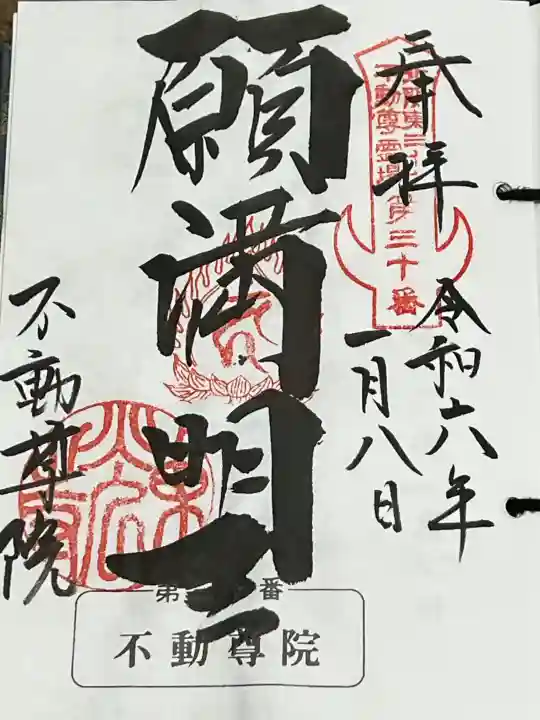 奉拝
不動尊霊場第三十番
令和六年
一月八日
願満明王
不動尊院
第 番
不動尊院